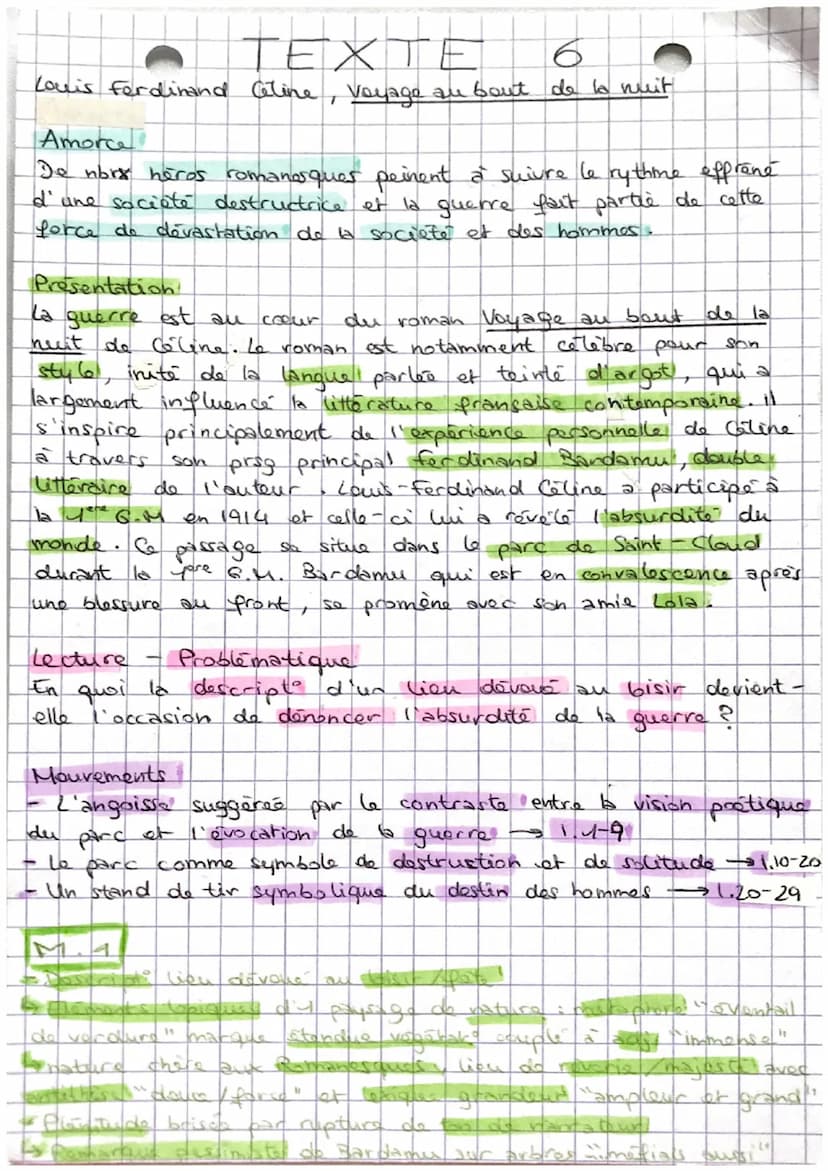 TEXTE 6
Louis Ferdinand Céline, Voyage au bout de la nuit
Amorce
De nbrx héros romanesques peinent à suivre le rythme effréné
d'une société destructrice et la guerre fait partie de cette
force de dévastation de la société et des hommes.
Présentation
La guerre est au cœur du roman Voyage au bout de la
nuit de Céline. Le roman est notamment célèbre pour son
style, inité de la langue parlée et teinté d'argot, qui a
largement influencé la littérature française contemporaine. il
s'inspire principalement de l'expérience personnelle de Céline
à travers son prsg principal ferdinand Bardamu, double
littéraire de l'auteur. Louis-Ferdinand Céline a participé à
la 1ère G.M en 1914 et celle-ci lui a révélé l'absurdité du
monde. Ce passage se situe dans le parc de Saint-Cloud
durant la 1ère G.M. Bardamu qui est en convalescence après
une blessure au front, se promène avec son amie Lola.
Lecture - Problématique
En quoi la descript° d'un lieu dévoué au loisir devient-
elle l'occasion de dénoncer l'absurdité de la guerre ?
Mouvements
- L'angoisse suggérée par le contraste entre la vision poétique
du parc et l'évocation de la guerre → l.1-9
- Le parc comme symbole de destruction et de solitude → l.10-20
- Un stand de tir symbolique du destin des hommes → l.20-29
M.1
- Descript° lieu dévoué au loisir/fête
↳ Eléments topiques d'1 paysage de nature : métaphore "éventail
de verdure" marque étendue végétale couplé à adj "immense"
↳ nature chère aux Romanesques, lieu de rêverie/majesté avec
antithèse "douce/force" et grandeur "ampleur et grand"
Plénitude brisée par rupture de ton de narrateur
↳ Remarque pessimiste de Bardamu sur arbres "méfiais aussi"